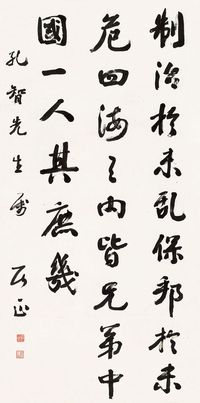 制治於未乱保邦於未
危四海之内皆兄弟中
國一人其庶幾
孔智先生属
右任